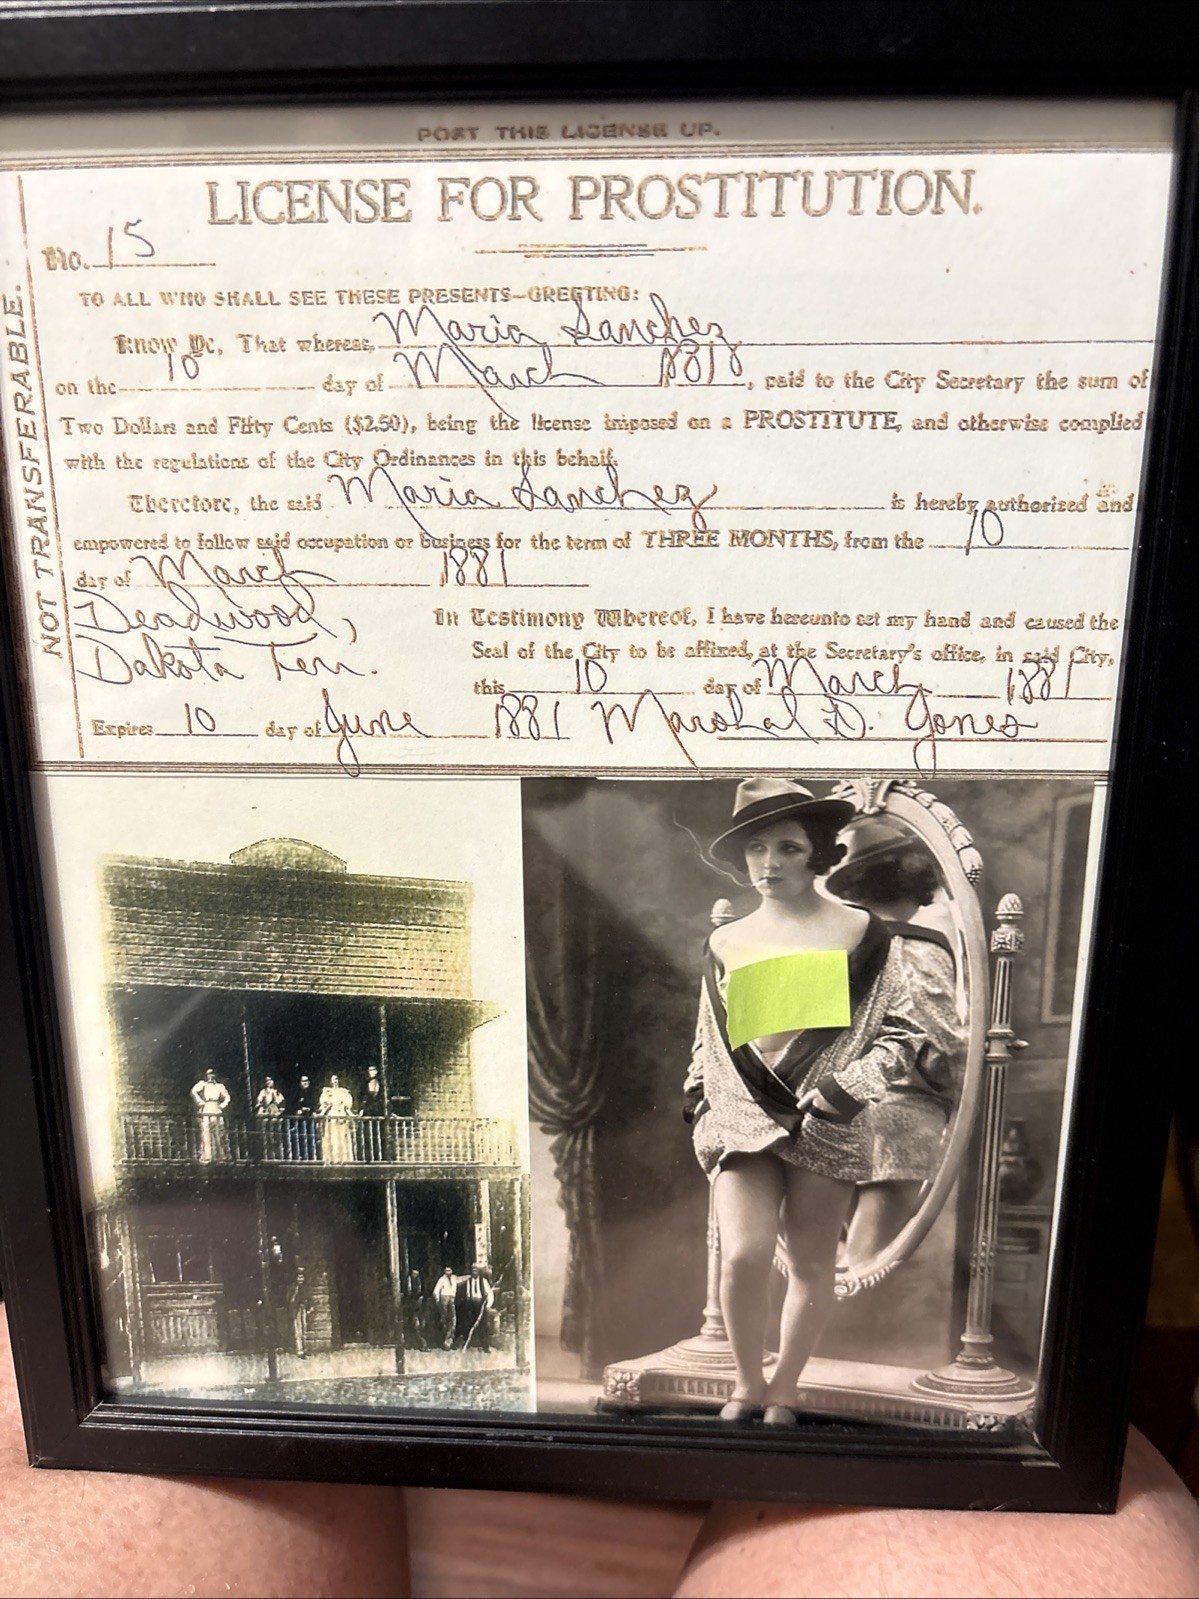 POST THIS LICENSE UP.
LICENSE FOR PROSTITUTION.
NOT TRANSFERABLE.
No. 15
TO ALL WHO SHALL SEE THESE PRESENTS—GREETING:
Know Ye, That whereas, Maria Sanchez
on the 10 day of March 1881, paid to the City Secretary the sum of
Two Dollars and Fifty Cents ($2.50), being the license imposed on a PROSTITUTE, and otherwise complied
with the regulations of the City Ordinances in this behalf.
Therefore, the said Maria Sanchez is hereby authorized and
empowered to follow said occupation or business for the term of THREE MONTHS, from the 10
day of March 1881
Deadwood,
Dakota Terr.
In Testimony Whereof, I have hereunto set my hand and caused the
Seal of the City to be affixed, at the Secretary's office, in said City,
this 10 day of March 1881
Expires 10 day of June 1881 Marshal D. Jones